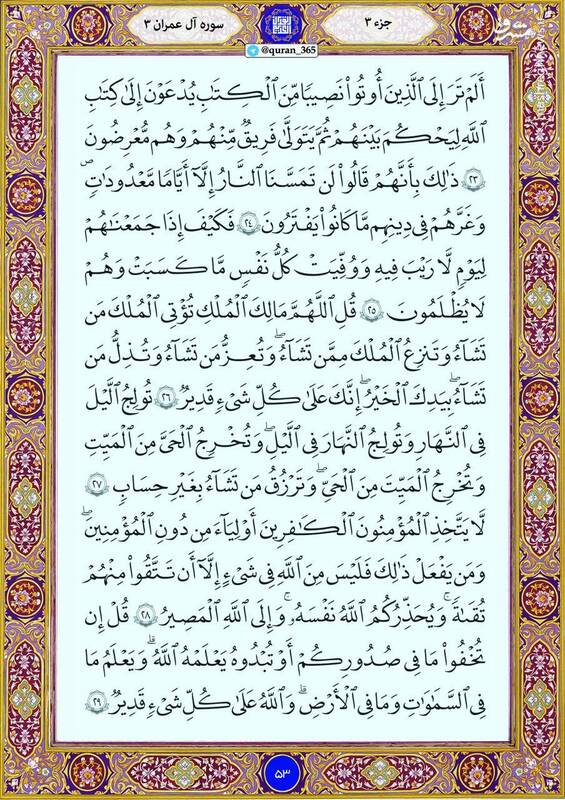 جزء ۳
سوره آل عمران ۳
@quran_365
أَلَمْ تَرَ إِلَى ٱلَّذِينَ أُوتُوا۟ نَصِيبًا مِّنَ ٱلْكِتَٰبِ يُدْعَوْنَ إِلَىٰ كِتَٰبِ
ٱللَّهِ لِيَحْكُمَ بَيْنَهُمْ ثُمَّ يَتَوَلَّىٰ فَرِيقٌ مِّنْهُمْ وَهُم مُّعْرِضُونَ
۲۳ ذَٰلِكَ بِأَنَّهُمْ قَالُوا۟ لَن تَمَسَّنَا ٱلنَّارُ إِلَّآ أَيَّامًا مَّعْدُودَٰتٍۖ
وَغَرَّهُمْ فِى دِينِهِم مَّا كَانُوا۟ يَفْتَرُونَ ۲۴ فَكَيْفَ إِذَا جَمَعْنَٰهُمْ
لِيَوْمٍ لَّا رَيْبَ فِيهِ وَوُفِّيَتْ كُلُّ نَفْسٍ مَّا كَسَبَتْ وَهُمْ
لَا يُظْلَمُونَ ۲۵ قُلِ ٱللَّهُمَّ مَٰلِكَ ٱلْمُلْكِ تُؤْتِى ٱلْمُلْكَ مَن
تَشَآءُ وَتَنزِعُ ٱلْمُلْكَ مِمَّن تَشَآءُۖ وَتُعِزُّ مَن تَشَآءُ وَتُذِلُّ مَن
تَشَآءُۖ بِيَدِكَ ٱلْخَيْرُۖ إِنَّكَ عَلَىٰ كُلِّ شَىْءٍ قَدِيرٌ ۲۶ تُولِجُ ٱلَّيْلَ
فِى ٱلنَّهَارِ وَتُولِجُ ٱلنَّهَارَ فِى ٱلَّيْلِۖ وَتُخْرِجُ ٱلْحَىَّ مِنَ ٱلْمَيِّتِ
وَتُخْرِجُ ٱلْمَيِّتَ مِنَ ٱلْحَىِّۖ وَتَرْزُقُ مَن تَشَآءُ بِغَيْرِ حِسَابٍ ۲۷
لَّا يَتَّخِذِ ٱلْمُؤْمِنُونَ ٱلْكَٰفِرِينَ أَوْلِيَآءَ مِن دُونِ ٱلْمُؤْمِنِينَۖ
وَمَن يَفْعَلْ ذَٰلِكَ فَلَيْسَ مِنَ ٱللَّهِ فِى شَىْءٍ إِلَّآ أَن تَتَّقُوا۟ مِنْهُمْ
تُقَىٰةًۗ وَيُحَذِّرُكُمُ ٱللَّهُ نَفْسَهُۥۗ وَإِلَى ٱللَّهِ ٱلْمَصِيرُ ۲۸ قُلْ إِن
تُخْفُوا۟ مَا فِى صُدُورِكُمْ أَوْ تُبْدُوهُ يَعْلَمْهُ ٱللَّهُۗ وَيَعْلَمُ مَا
فِى ٱلسَّمَٰوَٰتِ وَمَا فِى ٱلْأَرْضِۗ وَٱللَّهُ عَلَىٰ كُلِّ شَىْءٍ قَدِيرٌ ۲۹
۵۳